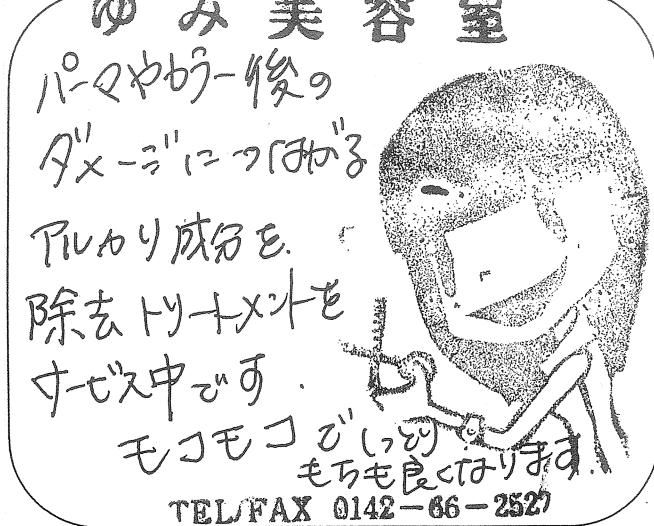 ゆみ美容室
パーマやカラー後の
ダメージにつながる
アルカリ成分を
除去トリートメントを
サービス中です.
モコモコでしっとり
もちも良くなります.
TEL/FAX 0142-66-2527